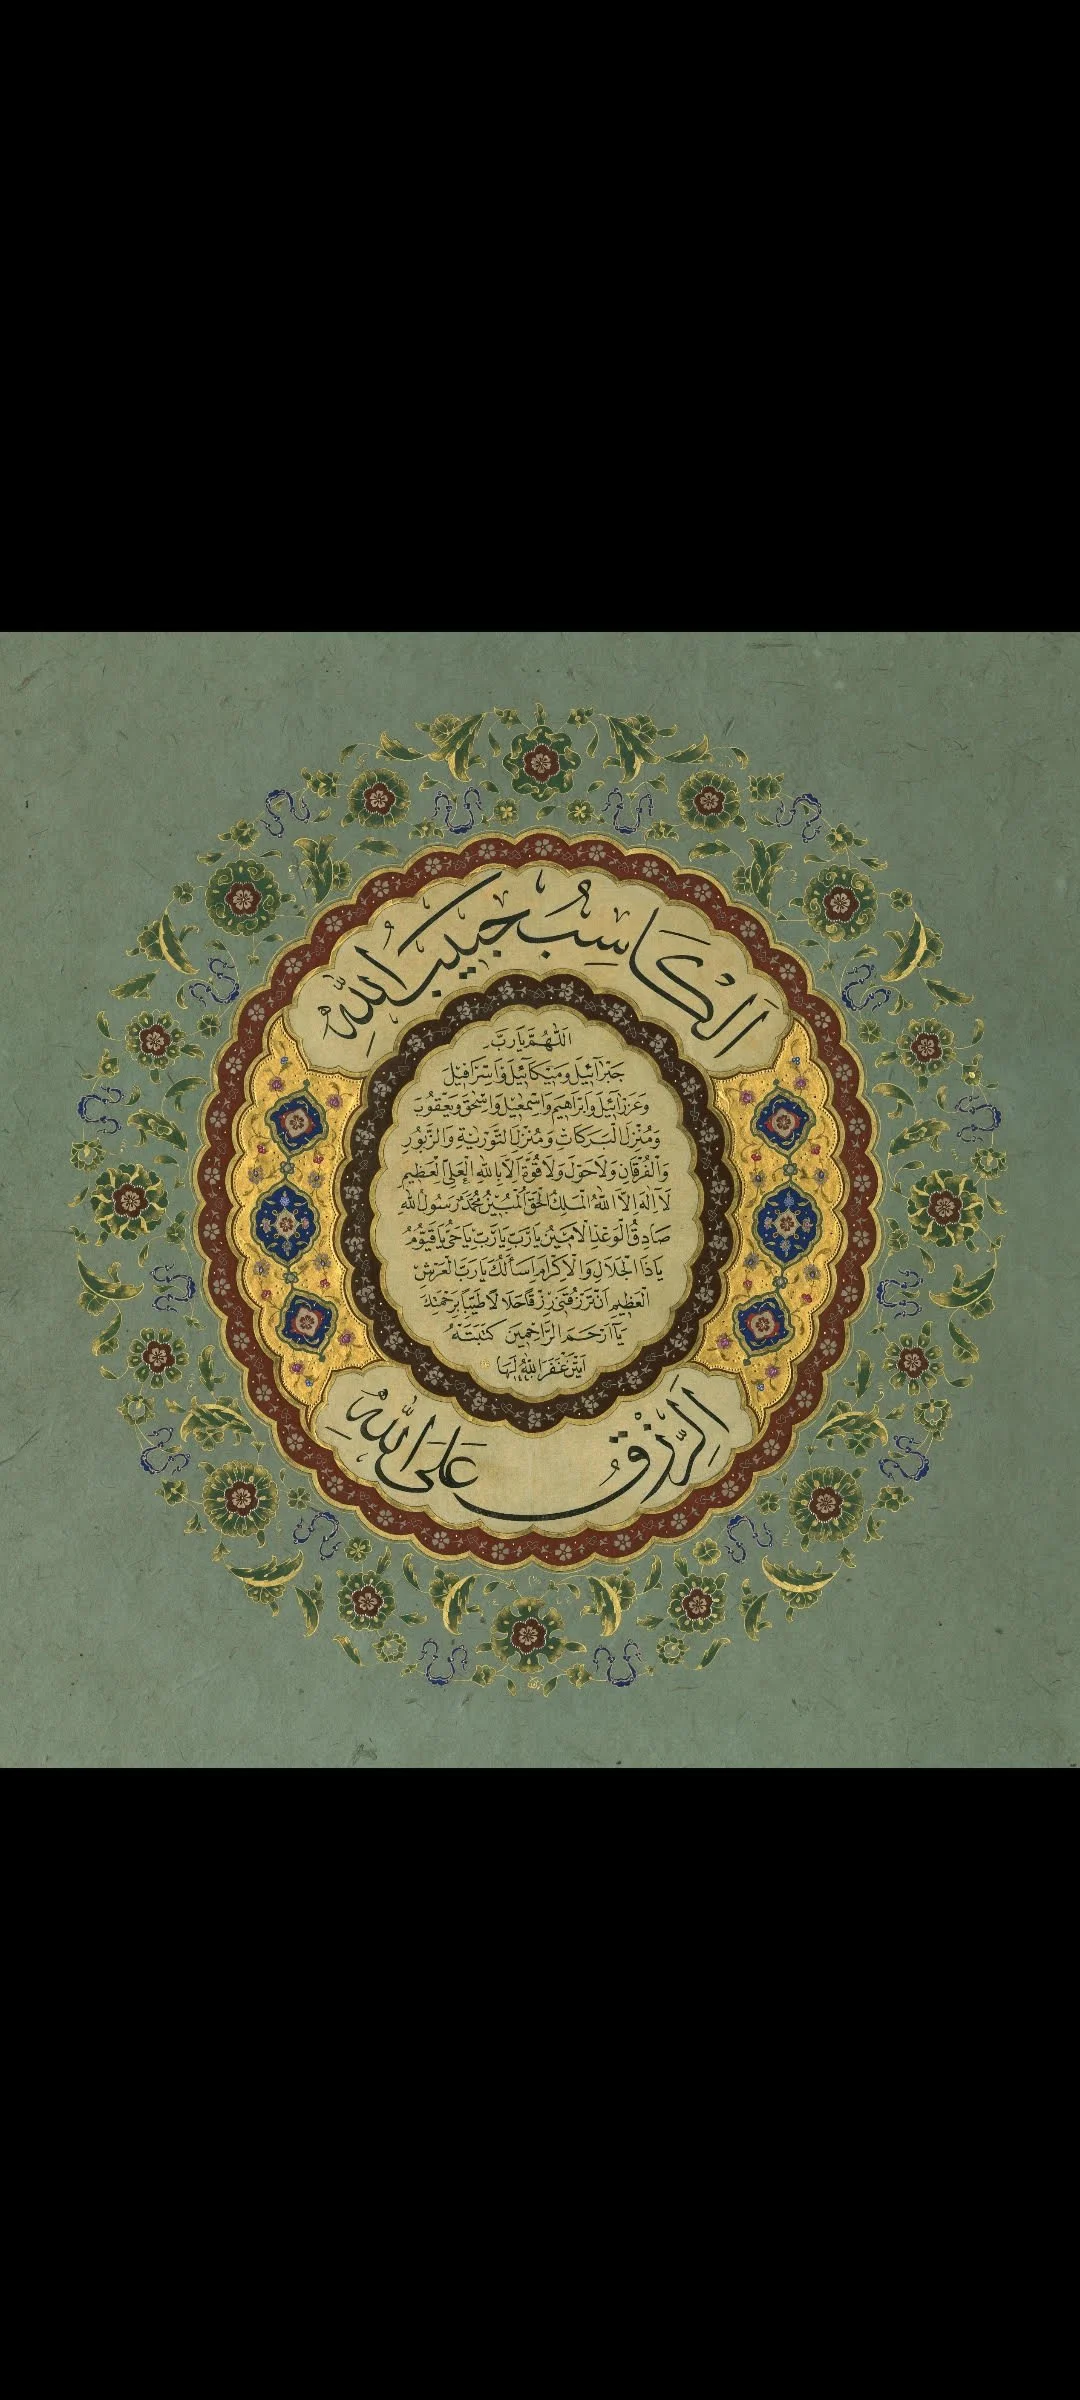 الْكَاسِبُ حَبِيبُ اللّٰهِ
اَللّٰهُمَّ يَا رَبَّ
جَبْرَآئِيلَ وَمِيكَآئِيلَ وَاِسْرَافِيلَ
وَعَزْرَآئِيلَ وَاِبْرَاهِيمَ وَاِسْمٰعِيلَ وَاِسْحٰقَ وَيَعْقُوبَ
وَمُنْزِلَ الْبَرَكَاتِ وَمُنْزِلَ التَّوْرٰيةِ وَالزَّبُورِ
وَالْفُرْقَانِ وَلَا حَوْلَ وَلَا قُوَّةَ اِلَّا بِاللّٰهِ الْعَلِىِّ الْعَظِيمِ
لَا اِلٰهَ اِلَّا اللّٰهُ الْمَلِكُ الْحَقُّ الْمُبِينُ مُحَمَّدٌ رَسُولُ اللّٰهِ
صَادِقُ الْوَعْدِ الْاَمِينُ يَا رَبِّ يَا رَبِّ يَا حَىُّ يَا قَيُّومُ
يَا ذَا الْجَلَالِ وَالْاِكْرَامِ اَسْاَلُكَ يَا رَبَّ الْعَرْشِ
الْعَظِيمِ اَنْ تَرْزُقَنِى رِزْقًا حَلَالًا طَيِّبًا بِرَحْمَتِكَ
يَآ اَرْحَمَ الرَّاحِمِينَ كَتَبَتْهُ
غَفَرَ اللّٰهُ لَهَا
اَلرِّزْقُ عَلَى اللّٰهِ